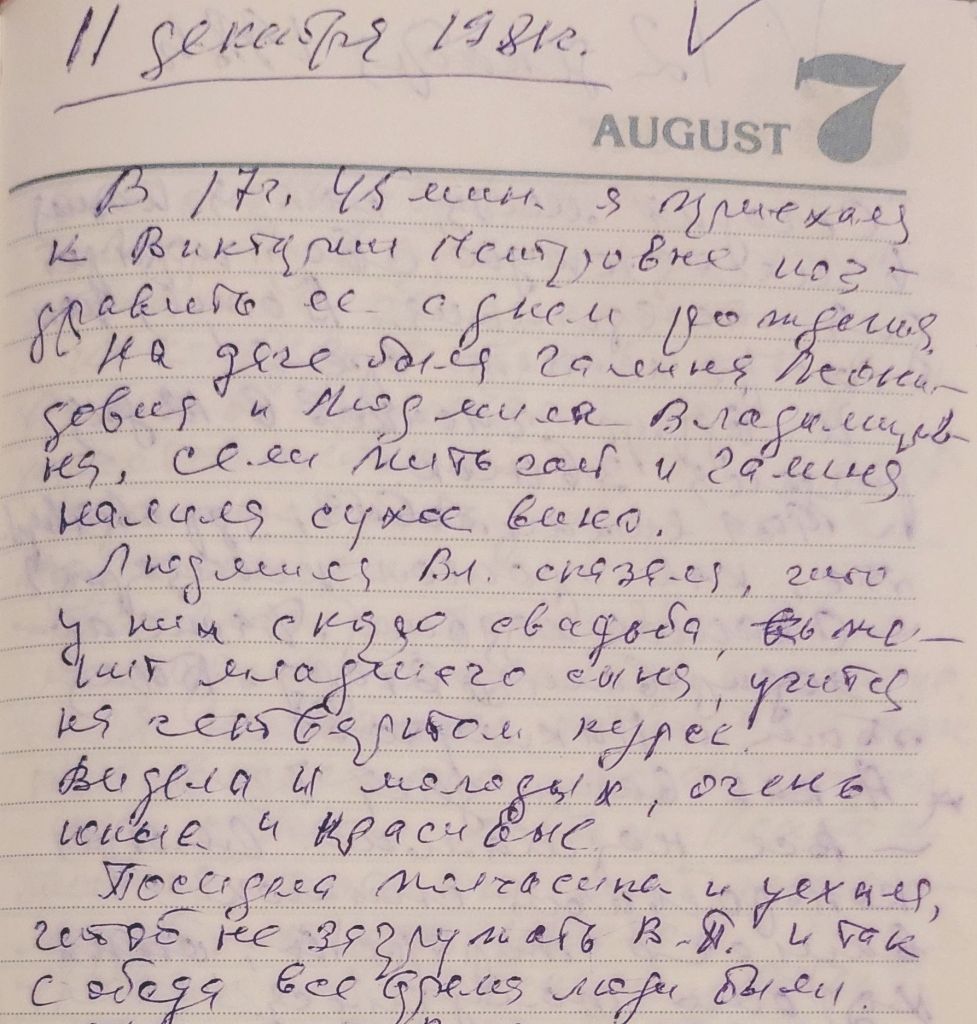 11 декабря 198 г.
AUGUST 7
В 17 ч. 45 мин. я приехала
к Виктории Петровне поз-
дравить ее с днем рождения.
На даче была Галина Леони-
довна и Людмила Владимиров-
на, сели пить чай и Галина
налила сухое вино.
Людмила Вл. сказала, что
у них скоро свадьба, жe-
нит младшего сына, учится
на четвертом курсе.
Видела и молодых, очень
юные и красивые
Посидела полчасика и уехала,
чтоб не загружать В.П. и так
с обеда все время люди были.